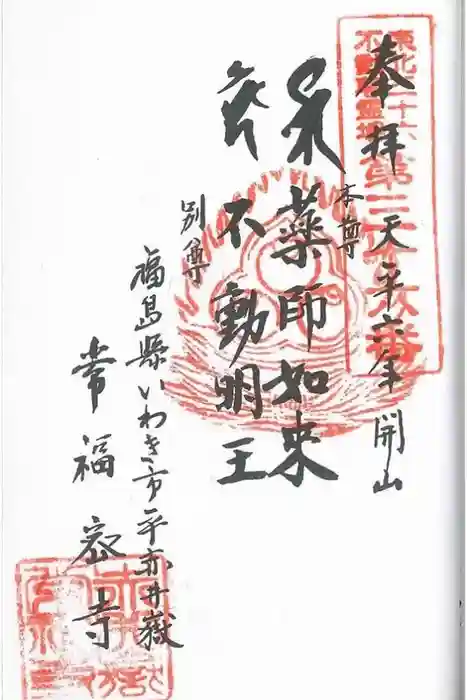 東北三十六
不動尊霊場
奉拝 天平六年開山
本尊
薬師如来
不動明王
別尊
福島縣いわき市平赤井嶽
常福密寺